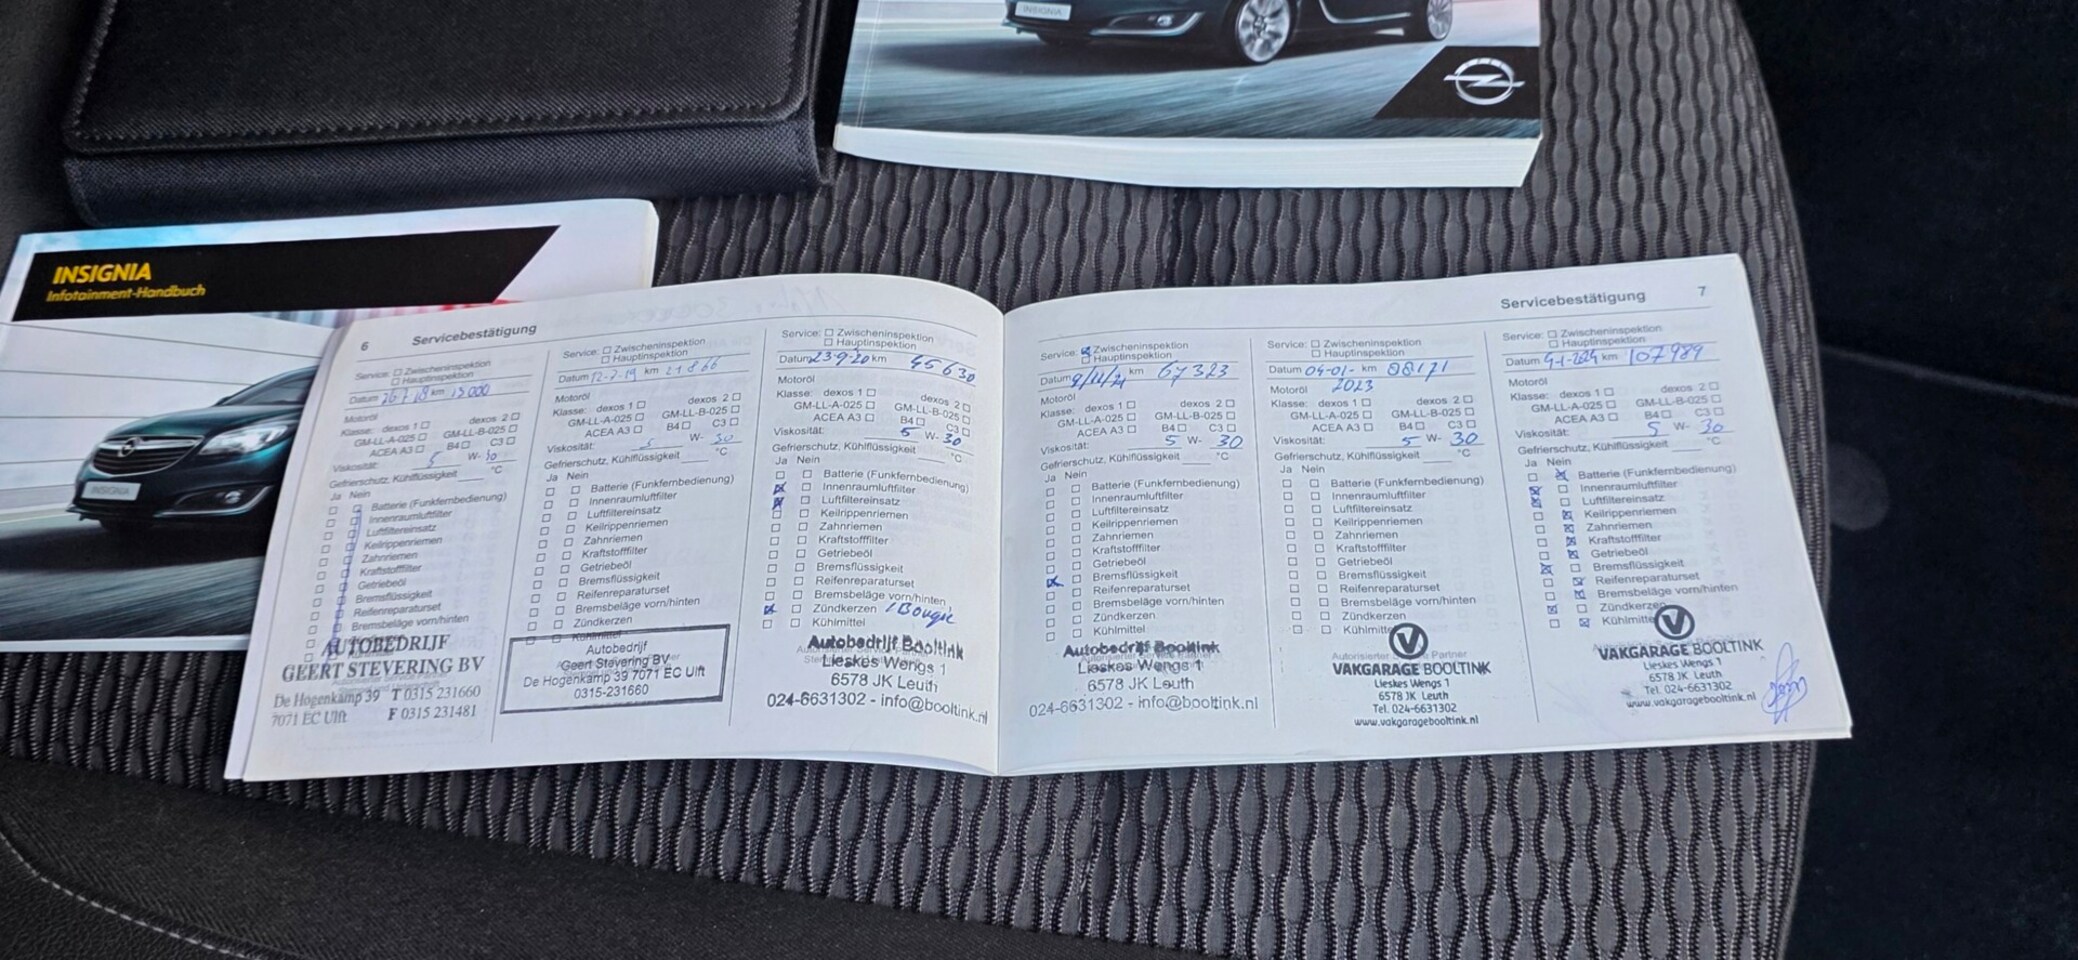 INSIGNIA
INSIGNIA
Infotainment-Handbuch
INSIGNIA
6 Servicebestätigung
Service: Zwischeninspektion
Hauptinspektion
Datum km 15000
Motoröl
Klasse: dexos 1 dexos 2
GM-LL-A-025 GM-LL-B-025
ACEA A3 B4 C3
Viskosität: 5 W- 30
Gefrierschutz, Kühlflüssigkeit °C
Ja Nein
Batterie (Funkfernbedienung)
Innenraumluftfilter
Luftfiltereinsatz
Keilrippenriemen
Zahnriemen
Kraftstofffilter
Getriebeöl
Bremsflüssigkeit
Reifenreparaturset
Bremsbeläge vorn/hinten
AUTOBEDRIJF
GEERT STEVERING BV
De Hogenkamp 39 T 0315 231660
7071 EC Ulft F 0315 231481
Service: Zwischeninspektion
Hauptinspektion
Datum 12-7-19 km 21866
Motoröl
Klasse: dexos 1 dexos 2
GM-LL-A-025 GM-LL-B-025
ACEA A3 B4 C3
Viskosität: 5 W- 30
Gefrierschutz, Kühlflüssigkeit °C
Ja Nein
Batterie (Funkfernbedienung)
Innenraumluftfilter
Luftfiltereinsatz
Keilrippenriemen
Zahnriemen
Kraftstofffilter
Getriebeöl
Bremsflüssigkeit
Reifenreparaturset
Bremsbeläge vorn/hinten
Zündkerzen
Kühlmittel
Autobedrijf
Geert Stevering BV
De Hogenkamp 39 7071 EC Ulft
0315-231660
Service: Zwischeninspektion
Hauptinspektion
Datum 23-9-20 km 45630
Motoröl
Klasse: dexos 1 dexos 2
GM-LL-A-025 GM-LL-B-025
ACEA A3 B4 C3
Viskosität: 5 W- 30
Gefrierschutz, Kühlflüssigkeit °C
Ja Nein
Batterie (Funkfernbedienung)
Innenraumluftfilter
Luftfiltereinsatz
Keilrippenriemen
Zahnriemen
Kraftstofffilter
Getriebeöl
Bremsflüssigkeit
Reifenreparaturset
Bremsbeläge vorn/hinten
Zündkerzen / Bougie
Kühlmittel
Autobedrijf Booltink
Lieskes Wengs 1
6578 JK Leuth
024-6631302 - info@booltink.nl
Servicebestätigung 7
Service: Zwischeninspektion
Hauptinspektion
Datum km 67323
Motoröl
Klasse: dexos 1 dexos 2
GM-LL-A-025 GM-LL-B-025
ACEA A3 B4 C3
Viskosität: 5 W- 30
Gefrierschutz, Kühlflüssigkeit °C
Ja Nein
Batterie (Funkfernbedienung)
Innenraumluftfilter
Luftfiltereinsatz
Keilrippenriemen
Zahnriemen
Kraftstofffilter
Getriebeöl
Bremsflüssigkeit
Reifenreparaturset
Bremsbeläge vorn/hinten
Zündkerzen
Kühlmittel
Autobedrijf Booltink
Lieskes Wengs 1
6578 JK Leuth
024-6631302 - info@booltink.nl
Service: Zwischeninspektion
Hauptinspektion
Datum 04-01- km 88171
Motoröl 2023
Klasse: dexos 1 dexos 2
GM-LL-A-025 GM-LL-B-025
ACEA A3 B4 C3
Viskosität: 5 W- 30
Gefrierschutz, Kühlflüssigkeit °C
Ja Nein
Batterie (Funkfernbedienung)
Innenraumluftfilter
Luftfiltereinsatz
Keilrippenriemen
Zahnriemen
Kraftstofffilter
Getriebeöl
Bremsflüssigkeit
Reifenreparaturset
Bremsbeläge vorn/hinten
Zündkerzen
Kühlmittel
VAKGARAGE BOOLTINK
Lieskes Wengs 1
6578 JK Leuth
Tel. 024-6631302
www.vakgaragebooltink.nl
Service: Zwischeninspektion
Hauptinspektion
Datum 4-1-2024 km 107989
Motoröl
Klasse: dexos 1 dexos 2
GM-LL-A-025 GM-LL-B-025
ACEA A3 B4 C3
Viskosität: 5 W- 30
Gefrierschutz, Kühlflüssigkeit °C
Ja Nein
Batterie (Funkfernbedienung)
Innenraumluftfilter
Luftfiltereinsatz
Keilrippenriemen
Zahnriemen
Kraftstofffilter
Getriebeöl
Bremsflüssigkeit
Reifenreparaturset
Bremsbeläge vorn/hinten
Zündkerzen
Kühlmittel
VAKGARAGE BOOLTINK
Lieskes Wengs 1
6578 JK Leuth
Tel. 024-6631302
www.vakgaragebooltink.nl